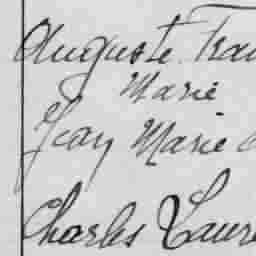 Auguste Fran
Marie
Jean Marie
Charles Laure